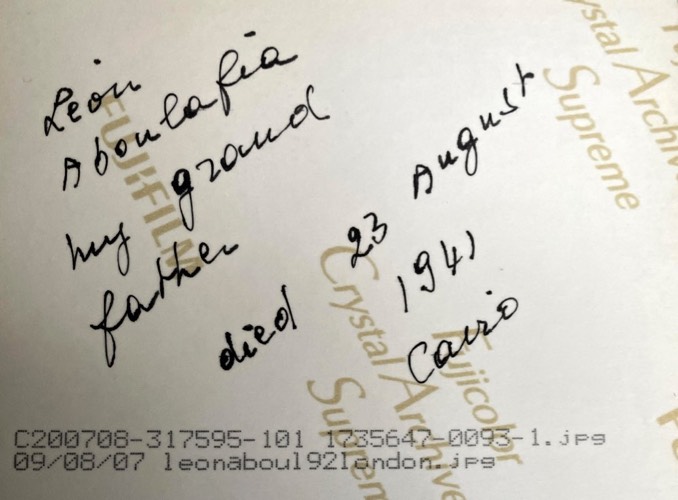 Léon
Aboulafia
my grand
father
died 23 August
1941
Cairo
C200708-317595-101 1735647-0093-1.jpg
09/08/07 leonaboul92london.jpg
FUJIFILM
Crystal Archive
Supreme
Fujicolor
Crystal Archive
Supreme